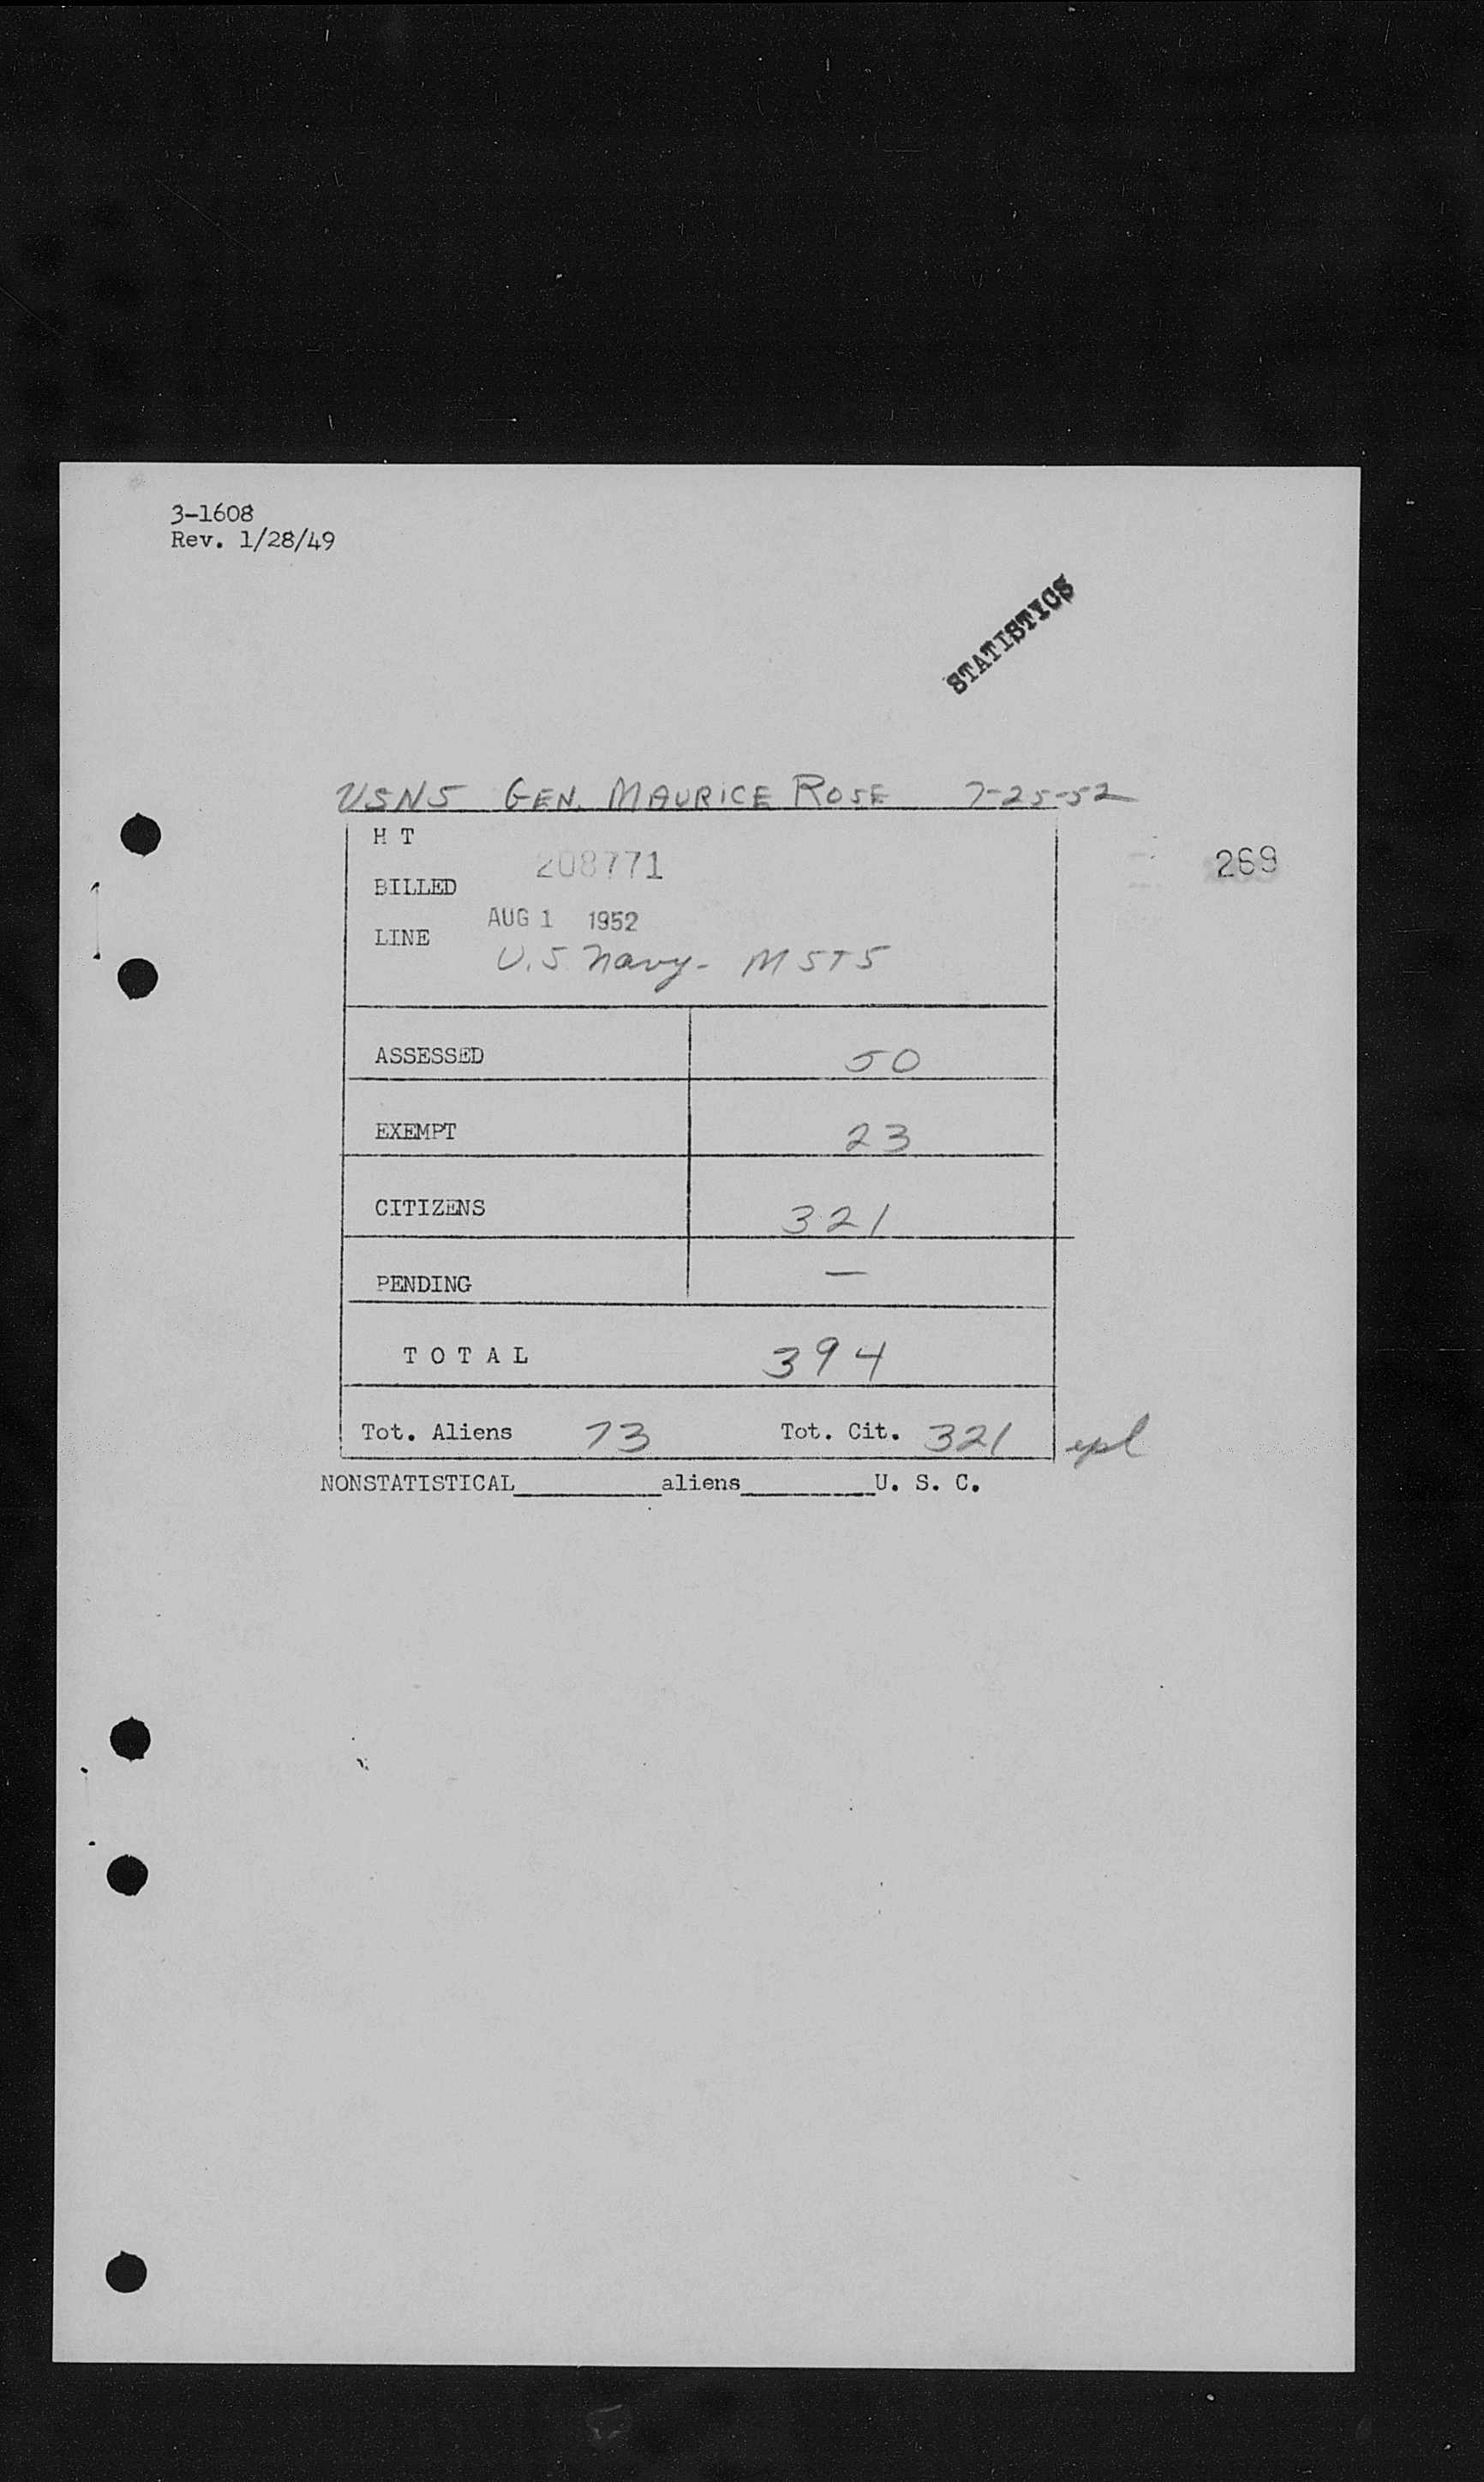 3-1608
Rev. 1/28/49
STATISTICS
USNS GEN. MAURICE ROSE 7-25-52
H T
208771
269
BILLED
AUG 1 1952
LINE
U.S Navy- MSTS
ASSESSED 50
EXEMPT 23
CITIZENS 321
PENDING —
T O T A L 394
Tot. Aliens 73 Tot. Cit. 321
NONSTATISTICAL__________aliens_________U. S. C.